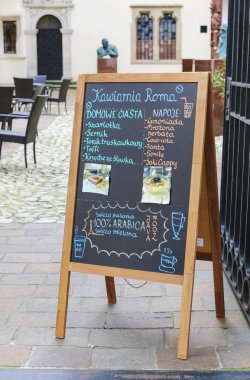 Kawiarnia Roma
DOMOWE CIASTA
Szarlotka
Sernik
Tort truskawkowy
Toffi
Kruche ze śliwką
NAPOJE
Limoniada
Mrożona
herbata
Coca-cola
Fanta
Sprite
Soki Cappy
Świeżo palona
100% ARABICA
Świeżo mielona